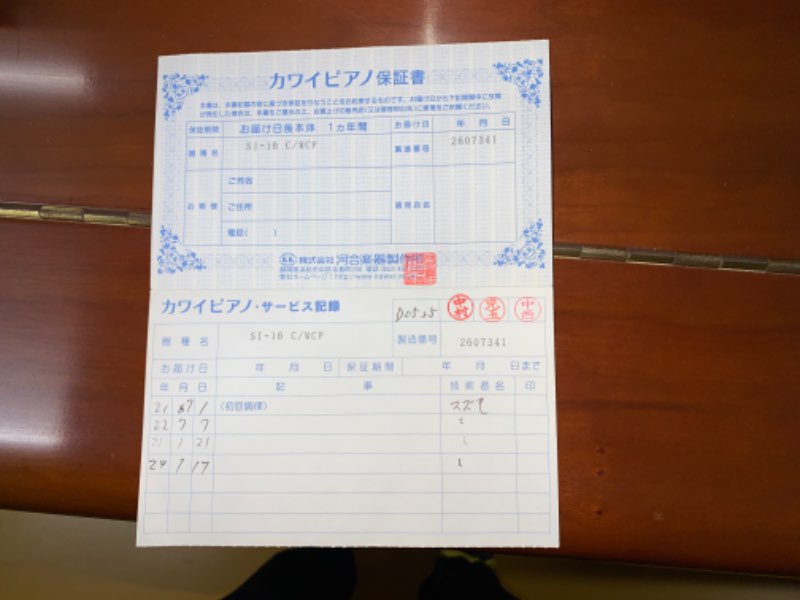 カワイピアノ保証書
本書は、本書記載内容に基づき保証を行なうことをお約束するものです。お届け日から下記期間中に故障
が発生した場合は、本書をご提示の上、お買上げの販売店
保証期間 お届け日後本体 1ヵ年間 お届け日 年 月 日
器種名 SI-16 C/WCP 製造番号 2607341
お客様 ご芳名
ご住所 販売店名
電話( )
株式会社 河合楽器製作所
カワイピアノ・サービス記録 中村 児玉 中西
器種名 SI-16 C/WCP 製造番号 2607341
お届け日 年 月 日 保証期間 年 月 日まで
年 月 日 記事 技術者名 印
21 1 (初回調律) スズキ
22 7 7
1 21
24 1 17